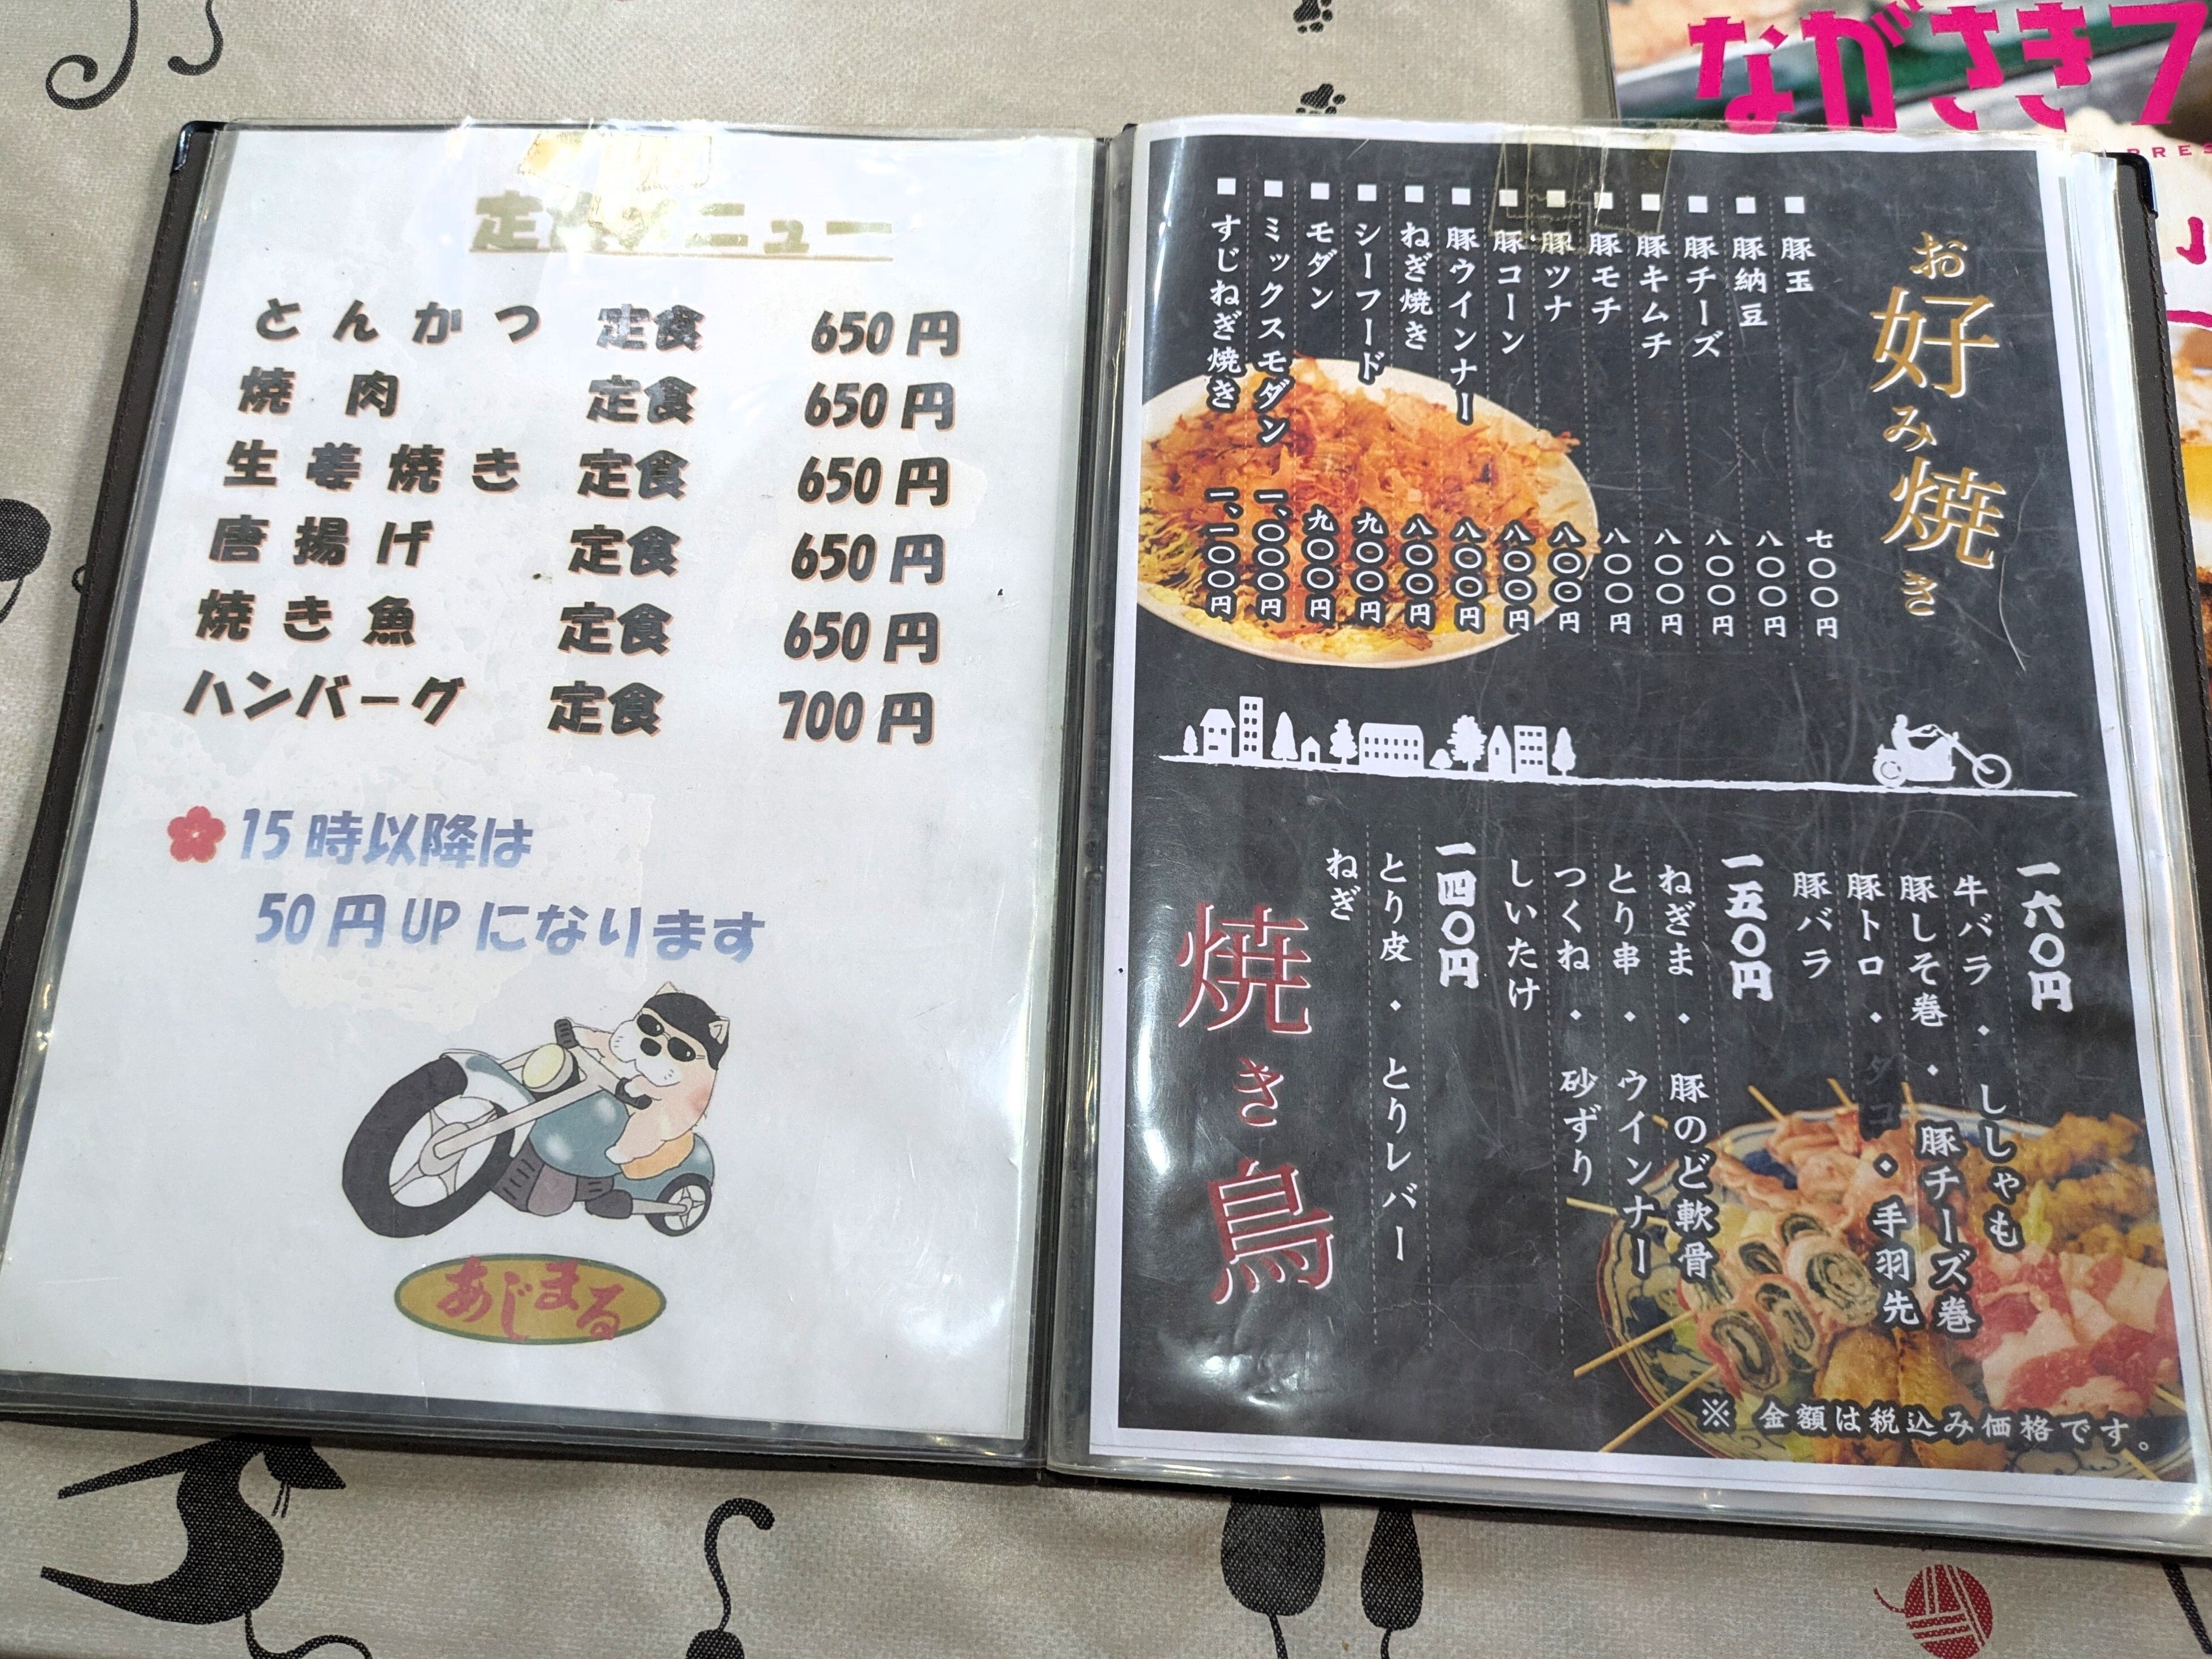 定食メニュー
とんかつ 定食 650円
焼肉 定食 650円
生姜焼き 定食 650円
唐揚げ 定食 650円
焼き魚 定食 650円
ハンバーグ 定食 700円
15時以降は
50円UPになります
あじまる
お好み焼き
■豚玉 七〇〇円
■豚納豆 八〇〇円
■豚チーズ 八〇〇円
■豚キムチ 八〇〇円
■豚モチ 八〇〇円
■豚ツナ 八〇〇円
■豚コーン 八〇〇円
■豚ウインナー 八〇〇円
■ねぎ焼き 八〇〇円
■シーフード 九〇〇円
■モダン 九〇〇円
■ミックスモダン 一、〇〇〇円
■すじねぎ焼き 一、一〇〇円
一六〇円
牛バラ・ししゃも
豚しそ巻・豚チーズ巻
豚トロ・タコ・手羽先
豚バラ
一五〇円
ねぎま・豚のど軟骨
とり串・ウインナー
つくね・砂ずり
しいたけ
一四〇円
とり皮・とりレバー
ねぎ
焼き鳥
※ 金額は税込み価格です。
ながさき